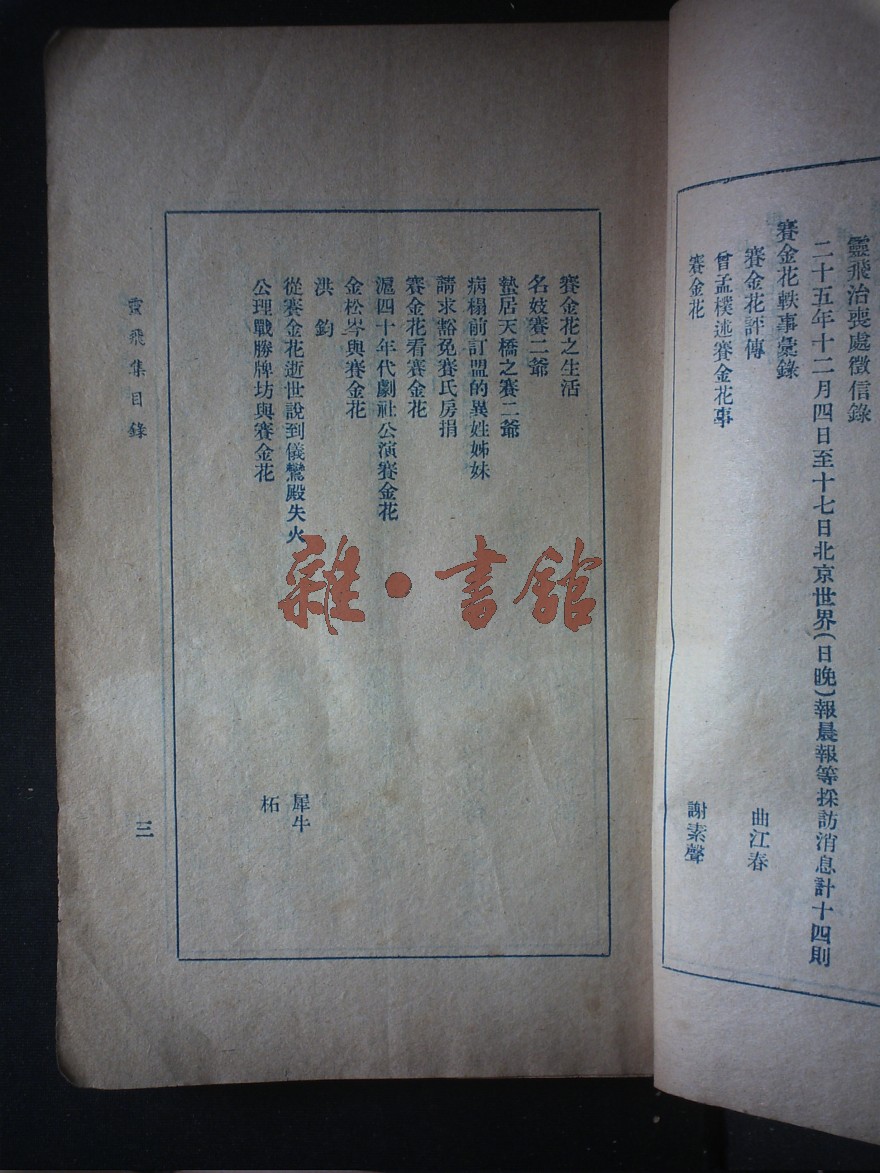 靈飛治喪處徵信錄
二十五年十二月四日至十七日北京世界(日晚)報晨報等採訪消息計十四則
賽金花軼事彙錄
賽金花評傳 曲江春
曾孟樸述賽金花事
賽金花 謝素聲
賽金花之生活
名妓賽二爺
蟄居天橋之賽二爺
病榻前訂盟的異姓姊妹
請求豁免賽氏房捐
賽金花看賽金花
滬四十年代劇社公演賽金花
金松岑與賽金花
洪鈞
從賽金花逝世說到儀鸞殿失火 犀牛
公理戰勝牌坊與賽金花 柘
靈飛集目錄
三
雜·書館